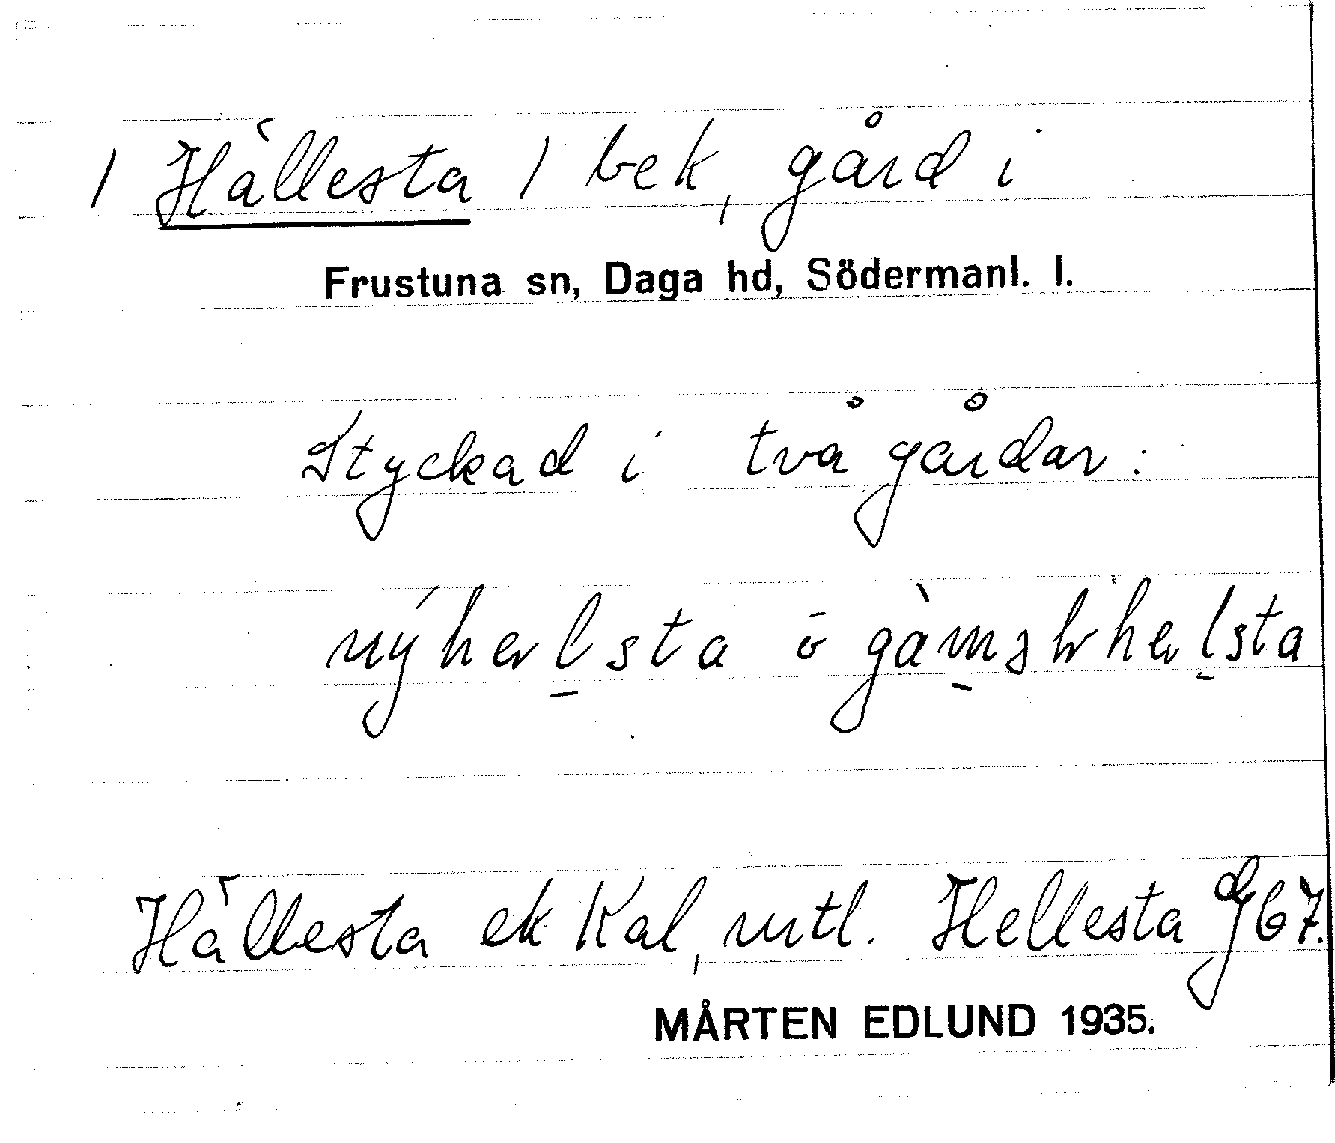 / Hällesta / bek, gård i
Frustuna sn, Daga hd, Södermanl. l.
Styckad i två gårdar:
nýhælsta ō gàmslhælsta
Hällesta ek Kal, mtl. Hellesta G67.
MÅRTEN EDLUND 1935.